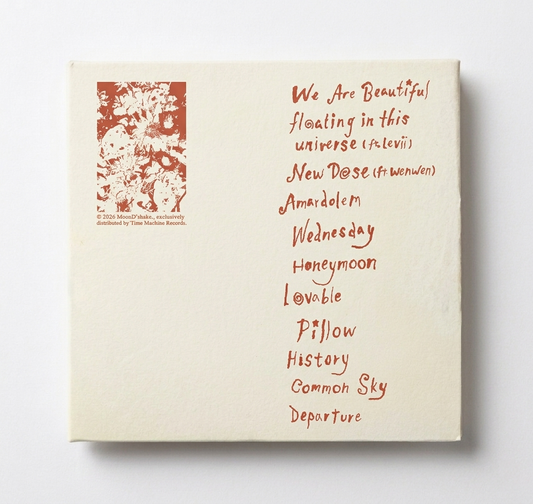 © 2026 MoonD'shake., exclusively
distributed by Time Machine Records.
We Are Beautiful
floating in this
universe (ft. Levii)
New Dose (ft. wenwen)
Amardolem
Wednesday
Honeymoon
Lovable
Pillow
History
Common Sky
Departure